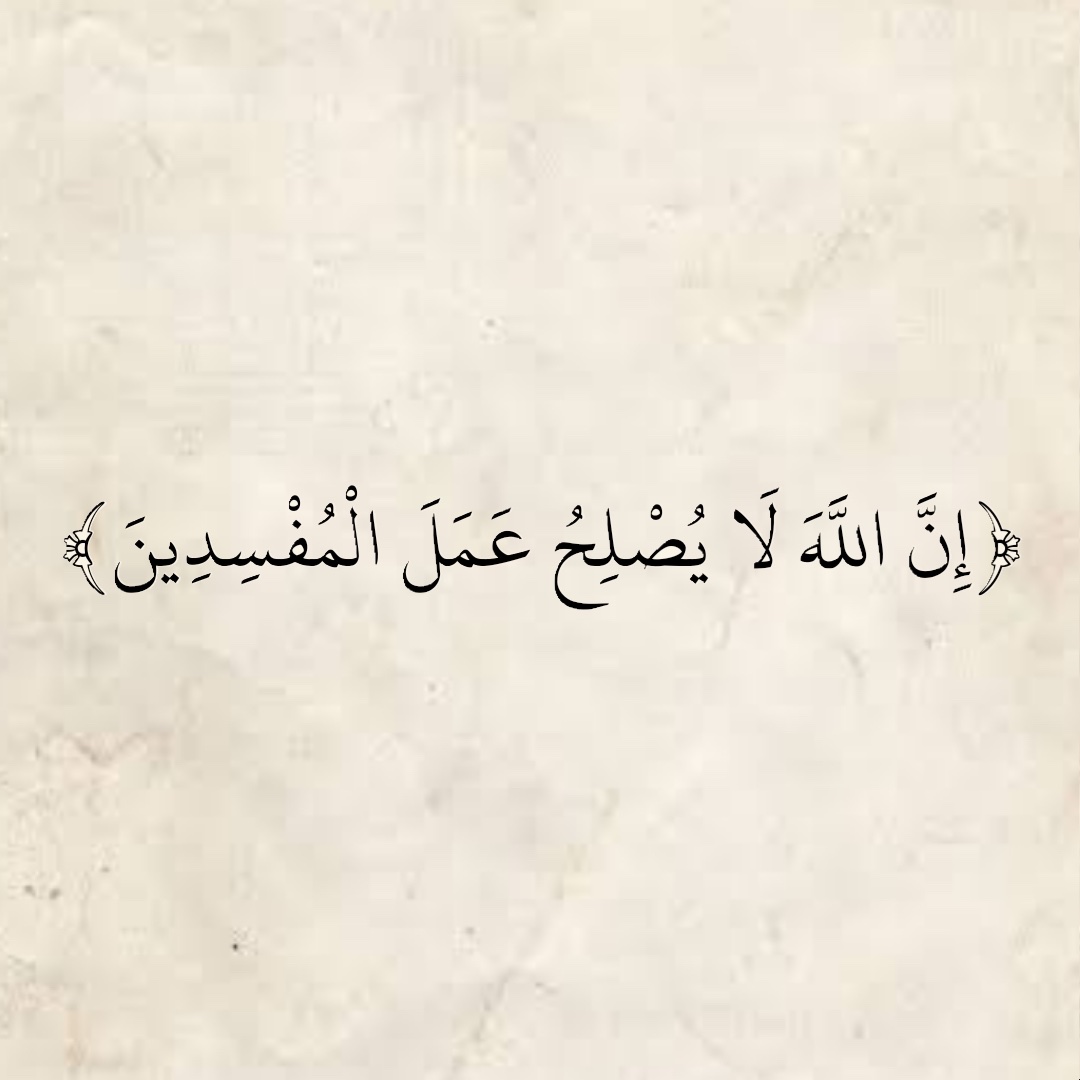 ﴿إِنَّ اللَّهَ لَا يُصْلِحُ عَمَلَ الْمُفْسِدِينَ﴾